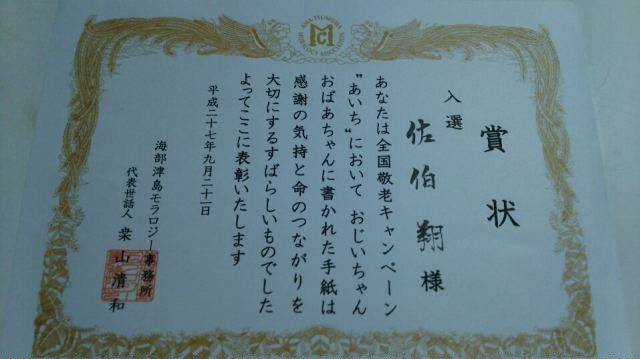 賞状
入選
佐伯翔様
あなたは全国敬老キャンペーン
"あいち"において おじいちゃん
おばあちゃんに書かれた手紙は
感謝の気持と命のつながりを
大切にするすばらしいものでした
よってここに表彰いたします
平成二十七年九月二十一日
海部津島モラロジー事務所
代表世話人 桒山清和